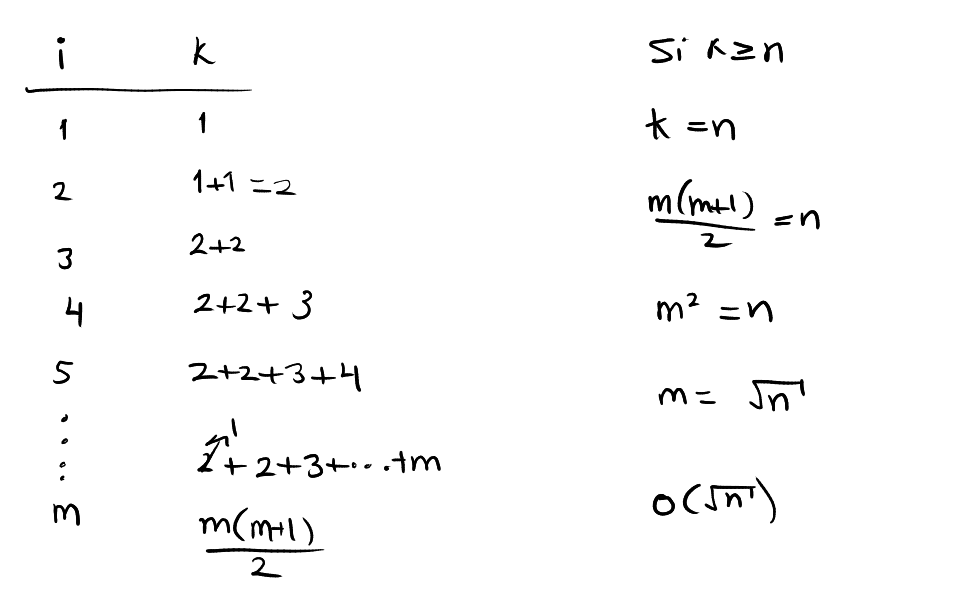 i k
1 1
2 1+1 = 2
3 2+2
4 2+2+ 3
5 2+2+3+4
⋮ 2↗1 + 2+3+....+m
m m(m+1)/2
Si k≥n
k = n
m(m+1)/2 = n
m² = n
m = √n
O(√n)